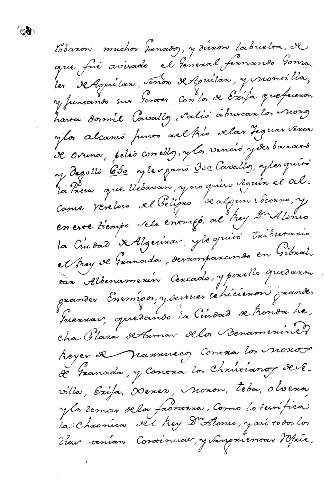 robaron muchos Ganados, y dieron la buelta, de
que fué avisado el General fernando Gonza
les de Aguilar, Señor de Aguilar, y Moncilla,
y juntando sus Gentes con los de Exija que fueron
hasta dos mil Cavallos, salió a buscar los Moros
y los alcanzó junto al Rio de las Yeguas serca
de Osuna, peleó con ellos, y los venció, y desbarató
y degolló y les ganó Cavallos, y les quitó
la Presa que llebavan, y no quiso seguir el al
canse receloso del Peligro de algun socorro, y
en este tiempo se le entregó al Rey Dn Alonso
la Ciudad de Algeciras, y le quitó Tributario
el Rey de Granada, desamparando en Gibral
tar Albenamerin Cercado, y por ello quedaron
grandes Enemigos, y despues se hicieron grandes
Guerras, quedando la Ciudad de Ronda he
cha Plaza de Armas de los Benamerines
Reyes de Marruecos contra los Moros
de Granada, y contra los Christianos de Se
villa, Exija, Xerez, Moron, Teba, Olvera,
y lo demas de la frontera, como lo testifica
la Chronica del Rey Dn Alonso, y asi todos los
Dias tenian Continuas, y sangrientas